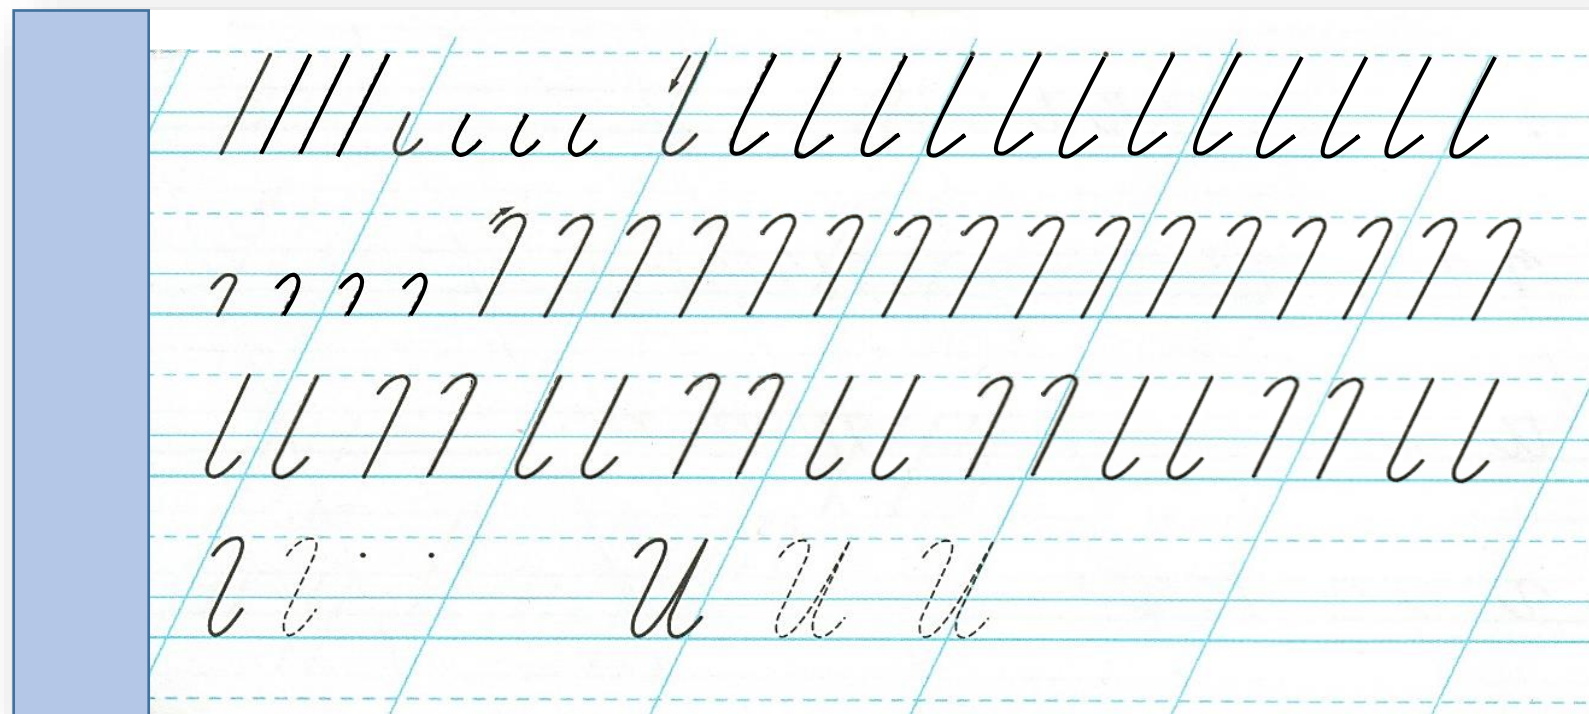 И И И